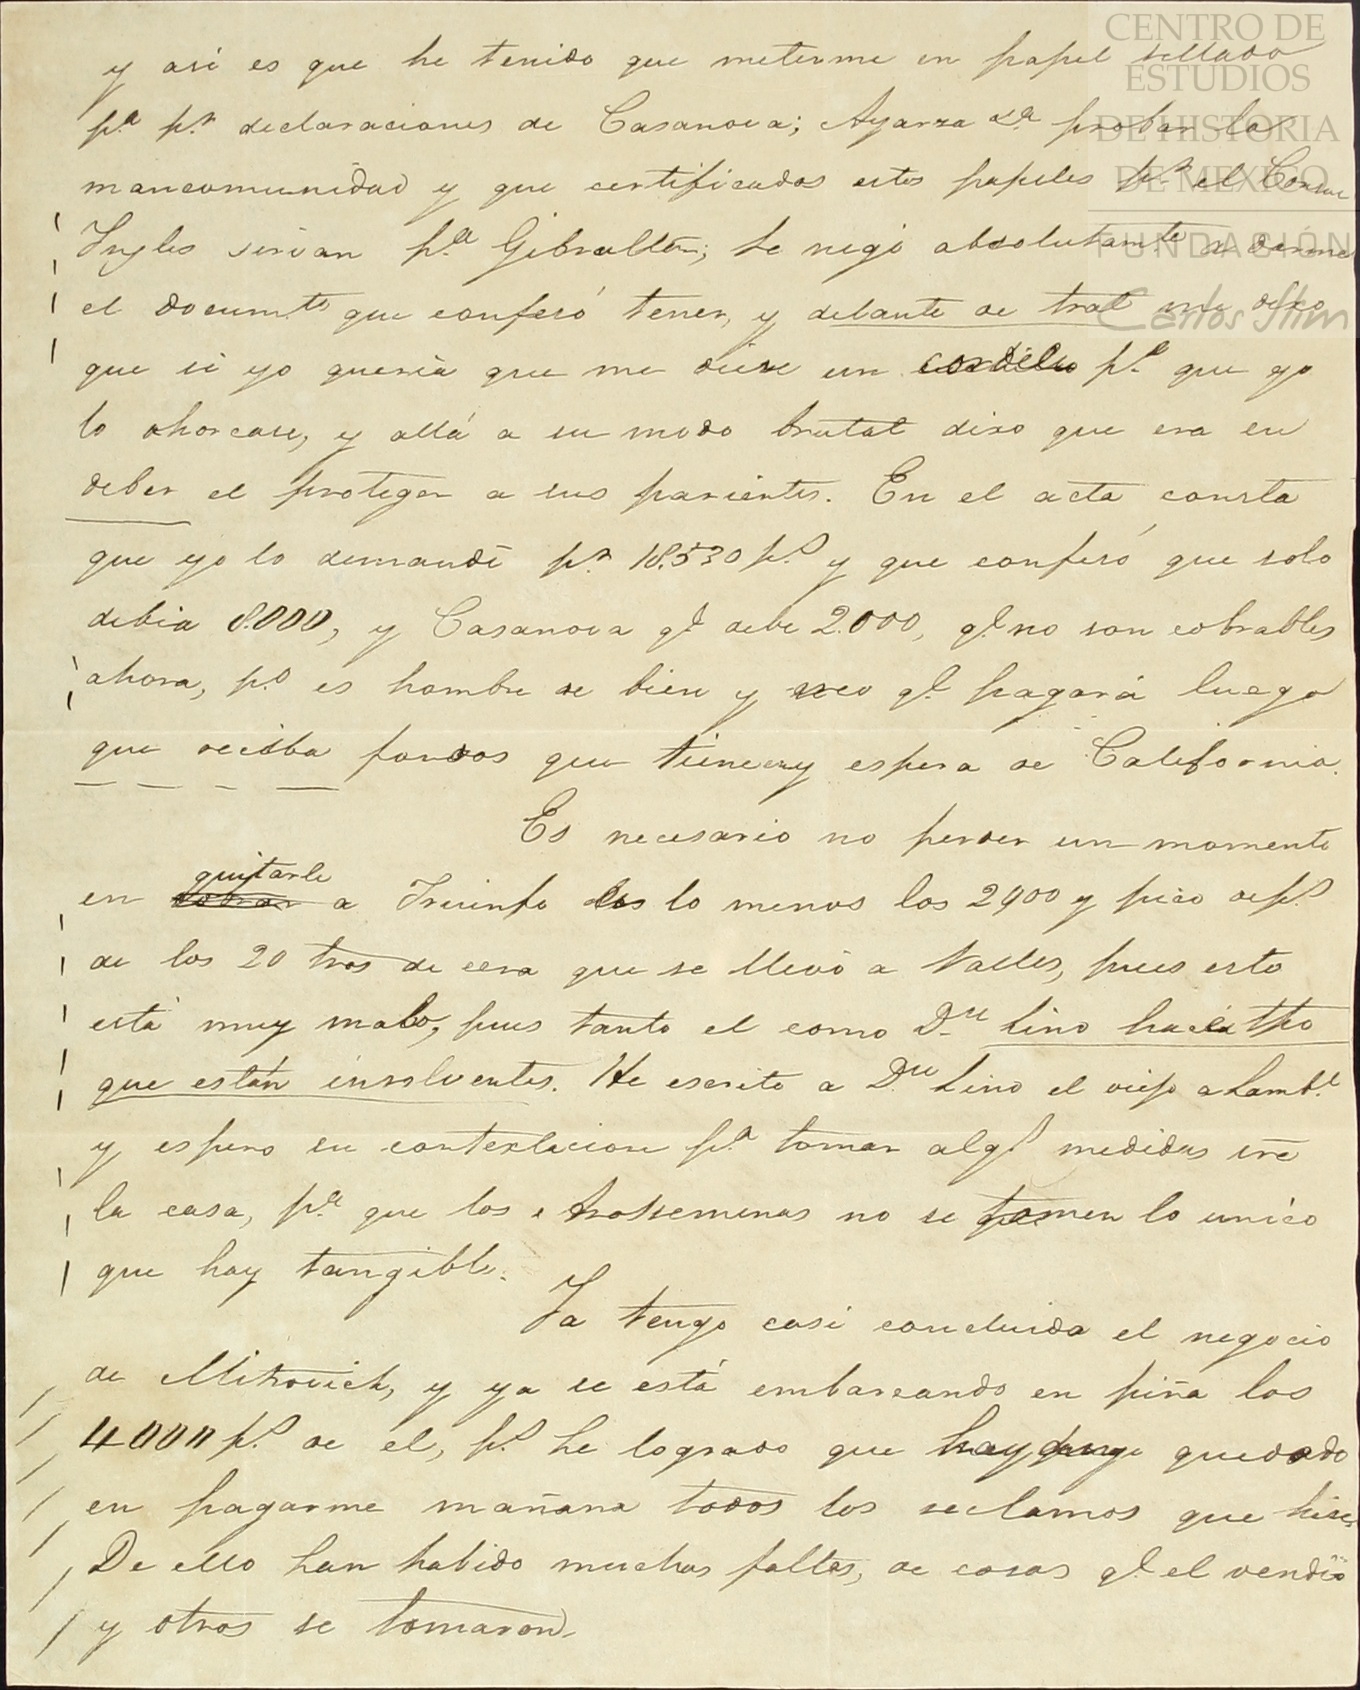 CENTRO DE
ESTUDIOS
DE HISTORIA
DE MEXICO
FUNDACIÓN
Carlos Slim
y asi es que he tenido que meterme en papel sellado
pa. pr. declaraciones de Casanova; Ayarza &a. probar la
mancomunidad y que certificados estos papeles pr. el Consul
Ingles sirvan pa. Gibraltar; se negó absolutamte. a darme
el documto. que confesó tener, y delante de tral me dixo
que si yo queria que me diese un cordelio pa. que yo
lo ahorcase, y allá a su modo brutal dixo que era su
deber el proteger a sus parientes. En el acta consta
que yo lo demandé pr. 18.530 ps. y que confesó que solo
debia 8.000, y Casanova qe. debe 2.000, qe. no son cobrables
ahora, po. es hombre de bien y creo qe. pagará luego
que reciba fondos que tiene y espera de California.
Es necesario no perder un momento
en quitarle a Triunfo los lo menos los 2900 y pico de ps.
de los 20 tros de cera que se llevó a Valles, pues esto
está muy malo, pues tanto el como Dn. Lino
que están insolventes. He escrito a Dn. Lino el viejo a Lambe.
y espero su contextacion pa. tomar algs. medidas sre
la casa, pa. que los Arossemenas no se tomen lo unico
que hay tangible.
Ya tengo casi concluida el negocio
de Mitrovich, y ya se está embarcando en piña los
4000 ps. de el, ps. he logrado que hay quedado
en pagarme mañana todos los reclamos que hise.
De ello han habido muchas faltas, de cosas qe. el vendió
y otros se tomaron.